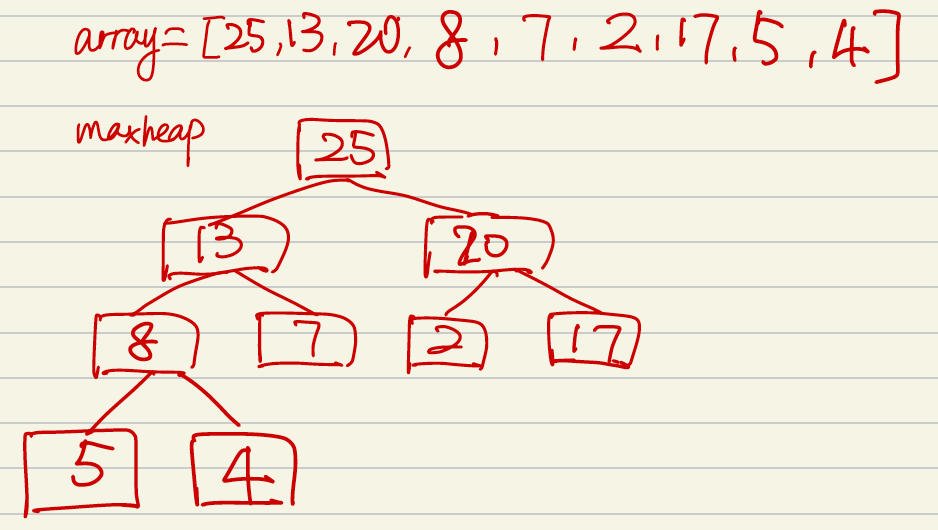 array=[25,13,20,8,7,2,17,5,4]
maxheap
25
13 20
8 7 2 17
5 4